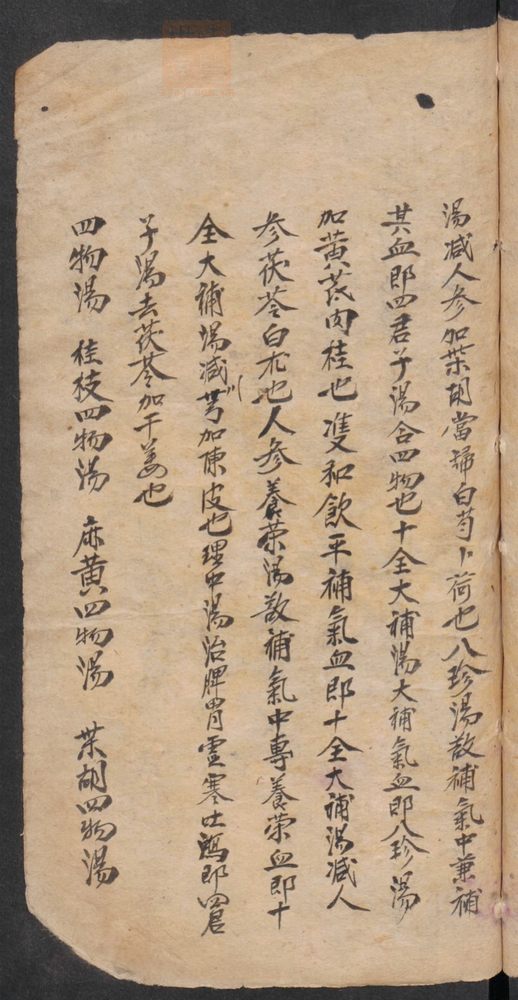 湯减人参加柴胡當埽白芍卜荷也八珍湯散補氣中兼補
其血即四君子湯合四物也十全大補湯大補氣血即八珍湯
加黄芪肉桂也隻和飲平補氣血即十全大補湯减人
参茯苓白朮也人参養荣湯散補氣中專養荣血即十
全大補湯减川芎加陳皮也理中湯治脾胃虚寒吐瀉即四君
子湯去茯苓加干姜也
四物湯 桂枝四物湯 麻黄四物湯 柴胡四物湯